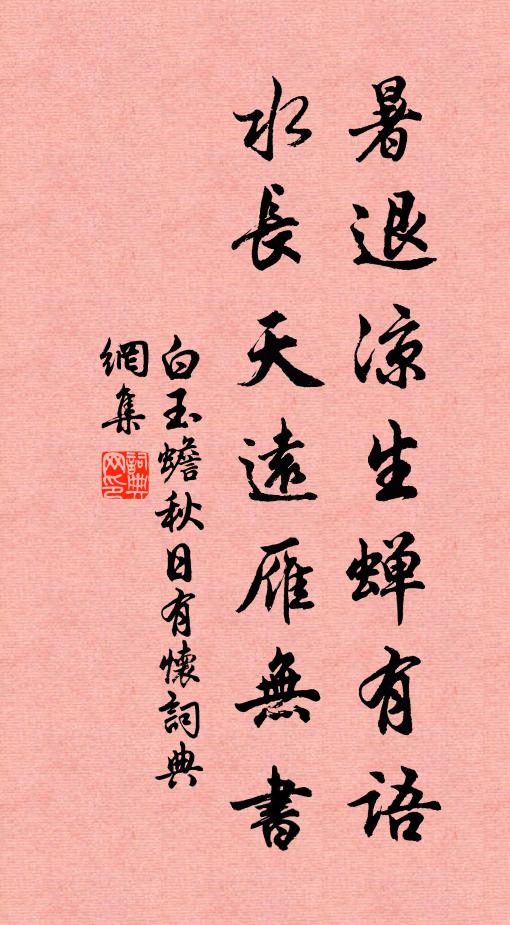 暑退凉生蝉有语
水長天遠雁無書
白玉蟾秋日有懷詞典
網集
詞典
网印